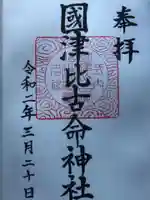 奉拝
國津比古命神社
令和二年三月二十日